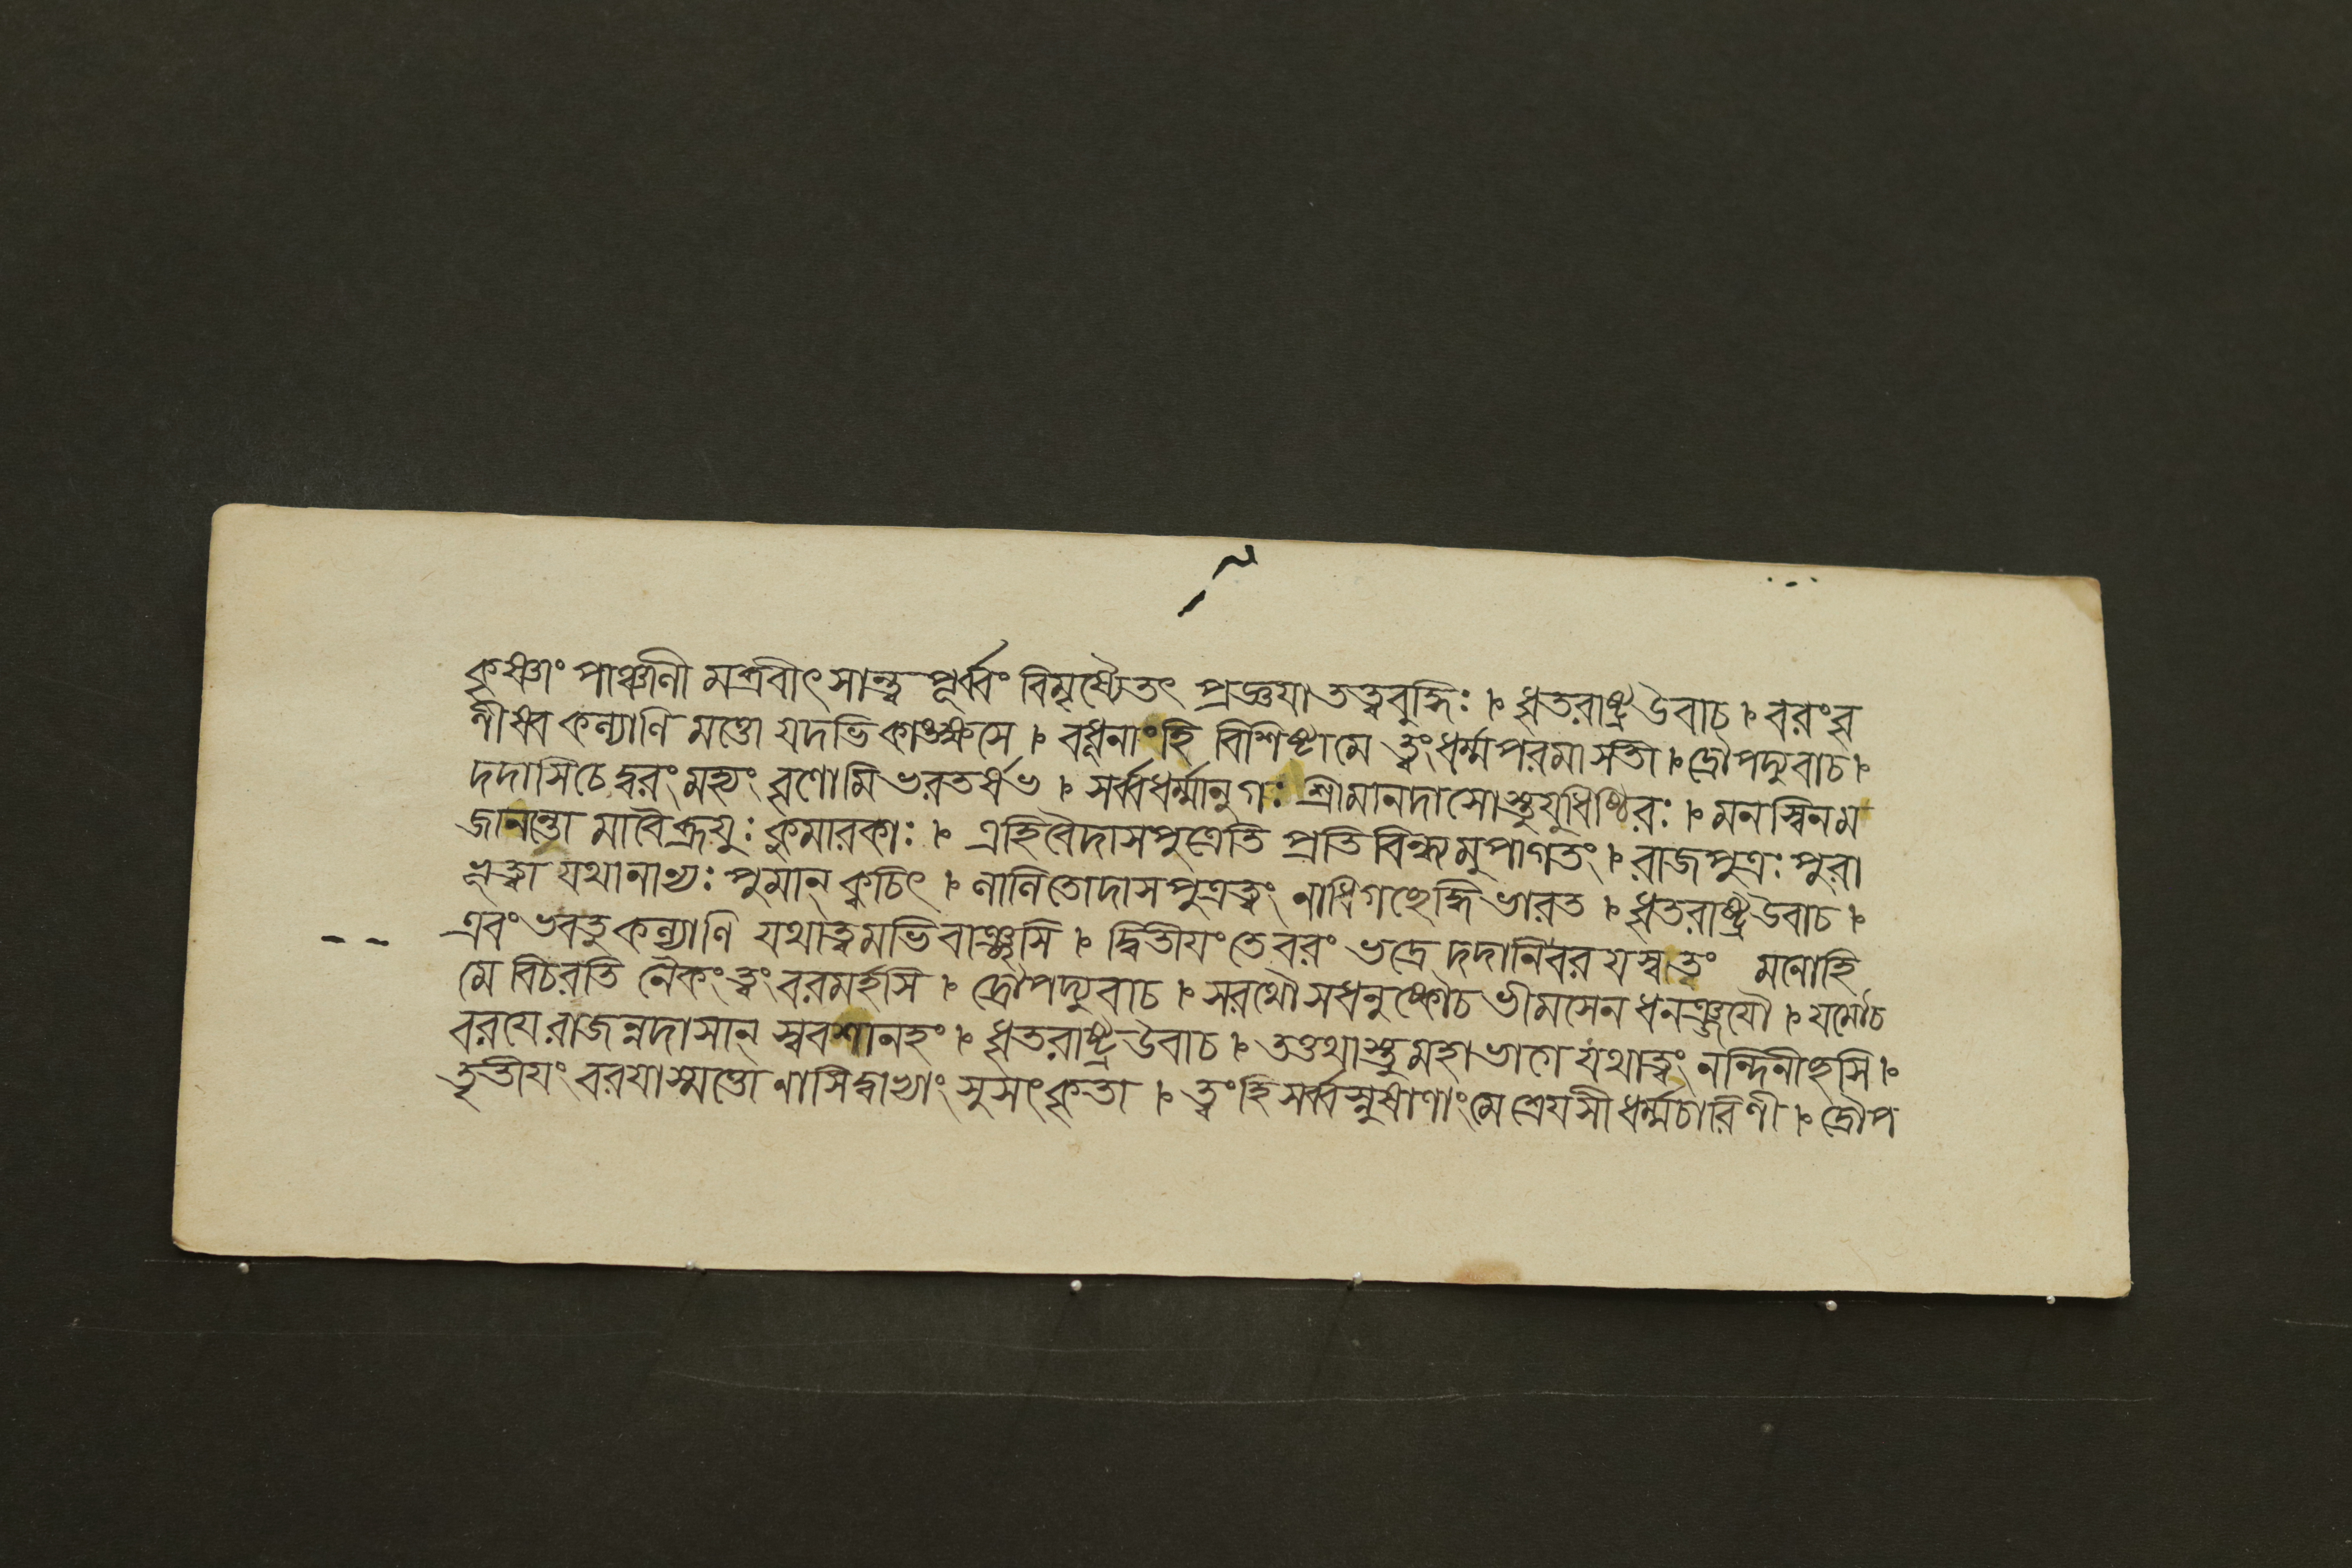 কৃষ্ণাং পাঞ্চালী মব্রবীৎ সান্ত্ব পূর্ব্বং বিমৃষ্যৈতৎ প্রজ্ঞয়া তত্ত্ববুদ্ধিঃ । ধৃতরাষ্ট্র উবাচ । বরংবৃ
ণীষ্ব কল্যাণি মত্তো যদভি কাঙ্ক্ষসে । বধূনাংহি বিশিষ্টামে ত্বংধর্ম্মপরমা সতী । দ্রৌপদ্যুবাচ ।
দদাসিচে দ্বরংমহ্যং বৃণোমি ভরতর্ষভ । সর্ব্বধর্ম্মানুগঃ শ্রীমানদাসোস্তুযুধিষ্ঠিরঃ । মনস্বিনম
জানন্তো মাবৈব্রূযুঃ কুমারকাঃ । এহিবৈদাসপুত্রেতি প্রতিবিন্ধ্যমুপাগতং । রাজপুত্রঃ পুরা
ভূত্বা যথানান্যঃ পুমান্ ক্বচিৎ । লালিতোদাসপুত্রত্বং নাধিগচ্ছেদ্ধি ভারত । ধৃতরাষ্ট্রউবাচ ।
এবং ভবতু কল্যাণি যথাত্বমভিবাঞ্ছসি । দ্বিতীয়ংতে বরং ভদ্রে দদানিবরযস্বত্বং মনোহি
মে বিচরতি নৈকংত্বং বরমর্হসি । দ্রৌপদ্যুবাচ । সরথৌ সধনুষ্কৌচ ভীমসেন ধনঞ্জয়ৌ । যমৌচ
বরযে রাজন্নদাসান্ স্ববশানহং । ধৃতরাষ্ট্রউবাচ । তত্তথাস্তুমহাভাগে যথাত্বং নন্দিনীহসি ।
তৃতীয়ং বরযাস্মত্তো নাসিদ্বাভ্যাং সুসৎকৃতা । ত্বংহিসর্ব্বস্নুষাণাংমে শ্রেয়সীধর্ম্মচারিণী । দ্রৌপ